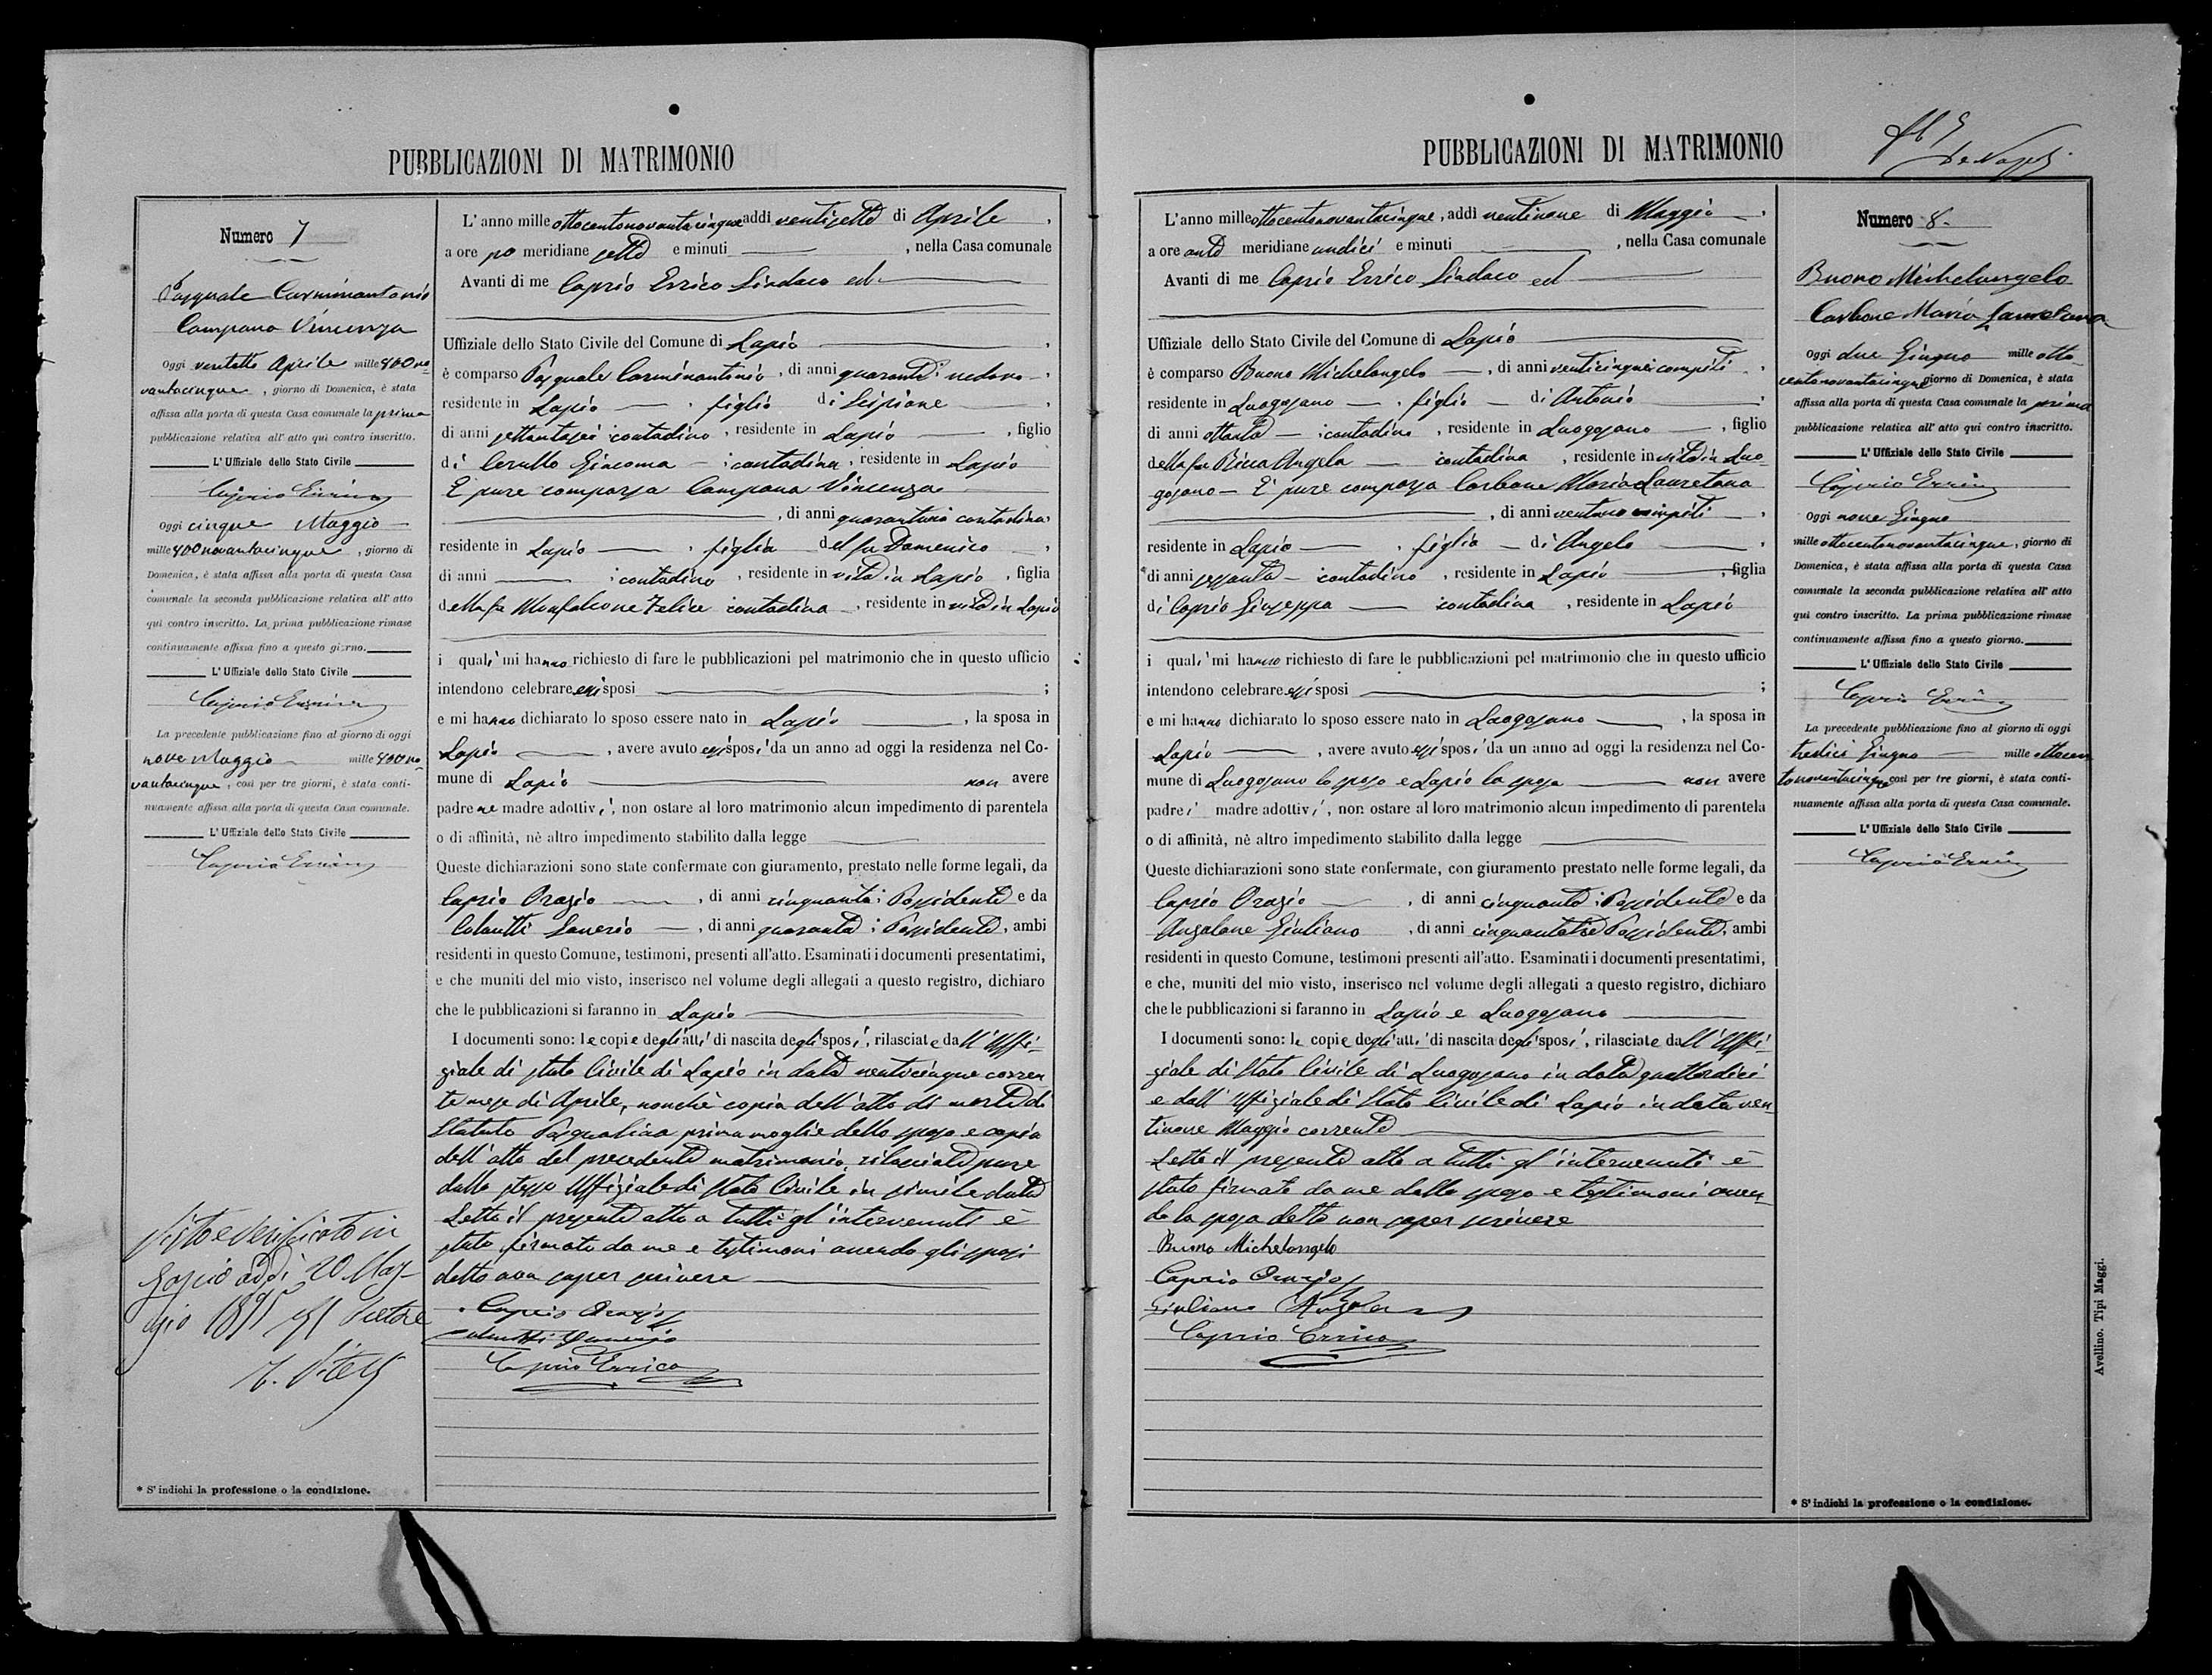 PUBBLICAZIONI DI MATRIMONIO
Numero 7
Pasquale Carminantonio
Campana Vincenza
Oggi ventotto Aprile mille 800 no
vantacinque, giorno di Domenica, è stata
affissa alla porta di questa Casa comunale la prima
pubblicazione relativa all' atto qui contro inscritto.
L' Uffiziale dello Stato Civile
Caprio Errico
Oggi cinque Maggio
mille 800 novantacinque, giorno di
Domenica, è stata affissa alla porta di questa Casa
comunale la seconda pubblicazione relativa all' atto
qui contro inscritto. La prima pubblicazione rimase
continuamente affissa fino a questo giorno.
L' Uffiziale dello Stato Civile
Caprio Errico
La precedente pubblicazione fino al giorno di oggi
nove Maggio mille 800 no
vantacinque, così per tre giorni, è stata conti-
nuamente affissa alla porta di questa Casa comunale.
L' Uffiziale dello Stato Civile
Caprio Errico
Visto e verificato in
Lapio addì 20 Mag-
gio 1895
* S' indichi la professione o la condizione.
L' anno mille ottocentonovantacinque addì ventisette di Aprile,
a ore po meridiane sette e minuti , nella Casa comunale
Avanti di me Caprio Errico Sindaco ed
Uffiziale dello Stato Civile del Comune di Lapio,
è comparso Pasquale Carminantonio, di anni quaranta vedovo,
residente in Lapio, figlio di Scipione,
di anni settantasei contadino, residente in Lapio, figlio
di Cerullo Giacoma contadina, residente in Lapio
E' pure comparsa Campana Vincenza
, di anni quarantuno contadina
residente in Lapio, figlia del fu Domenico,
di anni contadino, residente in vita in Lapio, figlia
della fu Monfalcone Felice contadina, residente in vita in Lapio
i quali mi hanno richiesto di fare le pubblicazioni pel matrimonio che in questo ufficio
intendono celebrare essi sposi ;
e mi hanno dichiarato lo sposo essere nato in Lapio, la sposa in
Lapio, avere avuto essi sposi da un anno ad oggi la residenza nel Co-
mune di Lapio non avere
padre ne madre adottivi, non ostare al loro matrimonio alcun impedimento di parentela
o di affinità, nè altro impedimento stabilito dalla legge
Queste dichiarazioni sono state confermate con giuramento, prestato nelle forme legali, da
Caprio Orazio, di anni cinquanta; Possidente e da
Colantti Saverio, di anni quaranta; Possidente, ambi
residenti in questo Comune, testimoni, presenti all'atto. Esaminati i documenti presentatimi,
e che muniti del mio visto, inserisco nel volume degli allegati a questo registro, dichiaro
che le pubblicazioni si faranno in Lapio
I documenti sono: le copie degli atti di nascita degli sposi, rilasciate dall'Uffi-
ziale di stato Civile di Lapio in data venticinque corren
te mese di Aprile, nonchè copia dell'atto di morte di
Statuto Pasqualina prima moglie dello sposo e copia
dell'atto del precedente matrimonio, rilasciate pure
dallo stesso Uffiziale di Stato Civile in simile data
Letto il presente atto a tutti gl'intervenuti è
stato firmato da me e testimoni avendo gli sposi
detto non saper scrivere
Caprio Orazio
Caprio Errico
PUBBLICAZIONI DI MATRIMONIO
L' anno mille ottocentonovantacinque, addì ventinove di Maggio,
a ore ante meridiane undici e minuti , nella Casa comunale
Avanti di me Caprio Errico Sindaco ed
Uffiziale dello Stato Civile del Comune di Lapio
è comparso Buono Michelangelo, di anni venticinque compiti,
residente in Luogosano, figlio di Antonio,
di anni ottanta contadino, residente in Luogosano, figlio
della fu Ricca Angela contadina, residente in vita in Luo-
gosano E' pure comparsa Carbone Maria Lauretana
, di anni ventuno compiti,
residente in Lapio, figlia di Angelo,
di anni sessanta contadino, residente in Lapio, figlia
di Caprio Giuseppa contadina, residente in Lapio
i quali mi hanno richiesto di fare le pubblicazioni pel matrimonio che in questo ufficio
intendono celebrare essi sposi ;
e mi hanno dichiarato lo sposo essere nato in Luogosano, la sposa in
Lapio, avere avuto essi sposi da un anno ad oggi la residenza nel Co-
mune di Luogosano lo sposo e Lapio la sposa non avere
padre i madre adottivi, non ostare al loro matrimonio alcun impedimento di parentela
o di affinità, nè altro impedimento stabilito dalla legge
Queste dichiarazioni sono state confermate, con giuramento prestato nelle forme legali, da
Caprio Orazio, di anni cinquanta; Possidente e da
Anzalone Giuliano, di anni cinquantatre Possidente, ambi
residenti in questo Comune, testimoni presenti all'atto. Esaminati i documenti presentatimi,
e che, muniti del mio visto, inserisco nel volume degli allegati a questo registro, dichiaro
che le pubblicazioni si faranno in Lapio e Luogosano
I documenti sono: le copie degli atti di nascita degli sposi, rilasciate dall'Uffi-
ziale di Stato Civile di Luogosano in data quattordici
e dall'Uffiziale di Stato Civile di Lapio in data ven
tinove Maggio corrente
Letto il presente atto a tutti gl'intervenuti è
stato firmato da me dallo sposo e testimoni aven
do la sposa detto non saper scrivere
Buono Michelangelo
Caprio Orazio
Giuliano Anzalone
Caprio Errico
Numero 8
Buono Michelangelo
Carbone Maria Lauretana
Oggi due Giugno mille otto
centonovantacinque giorno di Domenica, è stata
affissa alla porta di questa Casa comunale la prima
pubblicazione relativa all' atto qui contro inscritto.
L' Uffiziale dello Stato Civile
Caprio Errico
Oggi nove Giugno
mille ottocentonovantacinque, giorno di
Domenica, è stata affissa alla porta di questa Casa
comunale la seconda pubblicazione relativa all' atto
qui contro inscritto. La prima pubblicazione rimase
continuamente affissa fino a questo giorno.
L' Uffiziale dello Stato Civile
Caprio Errico
La precedente pubblicazione fino al giorno di oggi
tredici Giugno mille ottocen
tonovantacinque, così per tre giorni, è stata conti-
nuamente affissa alla porta di questa Casa comunale.
L' Uffiziale dello Stato Civile
Caprio Errico
* S' indichi la professione o la condizione.
Avellino. Tipi Maggi.